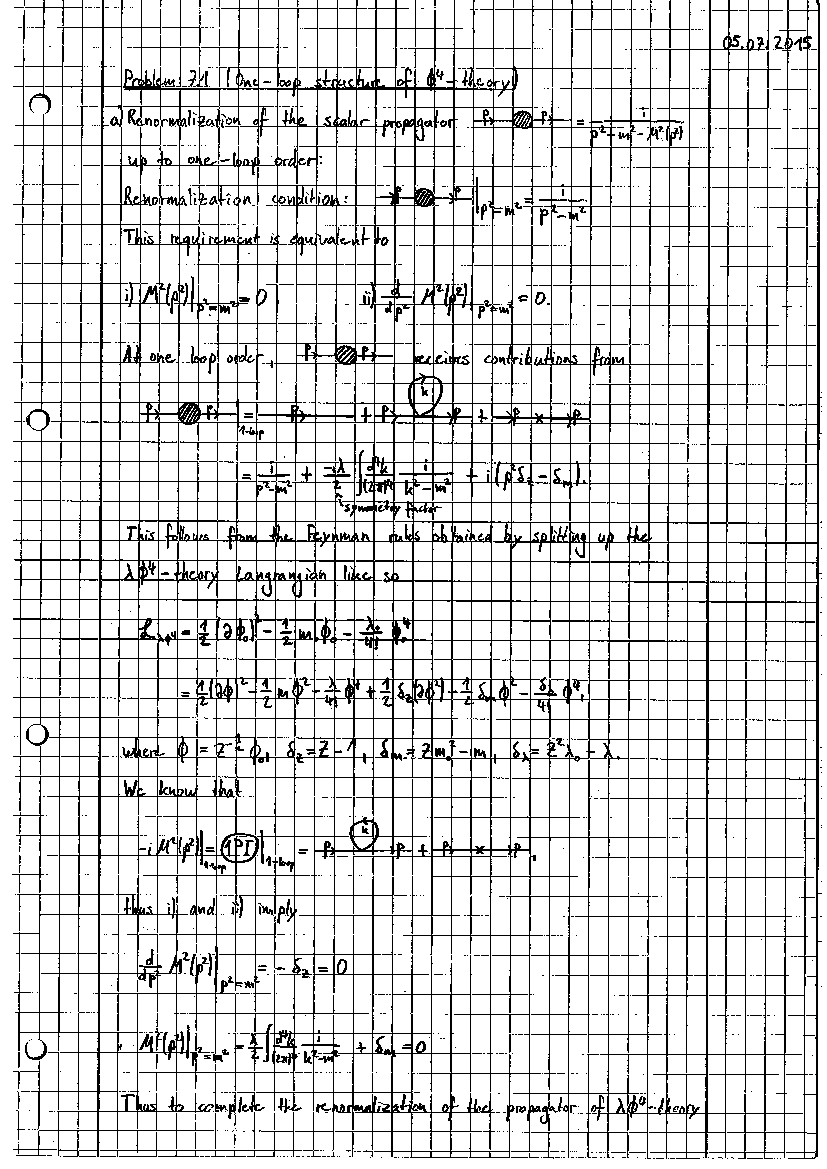 05.07.2015
Problem 7.1 (One-loop structure of ϕ⁴-theory)
a) Renormalization of the scalar propagator p p = i/(p²-m²-M²(p²))
up to one-loop order:
Renormalization condition: p p |p²=m² = i/(p²-m²)
This requirement is equivalent to
i) M²(p²)|p²=m² = 0 ii) d/dp² M²(p²)|p²=m² = 0.
At one loop order, p p receives contributions from
p p |1-loop = p + p k p + p × p
= i/(p²-m²) + -iλ/2 ∫ d⁴k/(2π)⁴ i/(k²-m²) + i(p²δ_Z - δ_m).
symmetry factor
This follows from the Feynman rules obtained by splitting up the
λϕ⁴-theory Langrangian like so
ℒ_λϕ⁴ = 1/2 (∂ϕ₀)² - 1/2 m₀ϕ₀ - λ₀/4! ϕ₀⁴
= 1/2 (∂ϕ)² - 1/2 m ϕ² - λ/4! ϕ⁴ + 1/2 δ_Z(∂ϕ²) - 1/2 δ_m ϕ² - δ_λ/4! ϕ⁴,
where ϕ = Z^-1/2 ϕ₀, δ_Z = Z - 1, δ_m = Z m₀² - m, δ_λ = Z²λ₀ - λ.
We know that
-i M²(p²)|1-loop = 1PI |1-loop = p k p + p × p,
thus i) and ii) imply
d/dp² M²(p²)|p²=m² = - δ_Z = 0
M²(p²)|p²=m² = λ/2 ∫ d⁴k/(2π)⁴ i/(k²-m²) + δ_m = 0
Thus to complete the renormalization of the propagator of λϕ⁴-theory